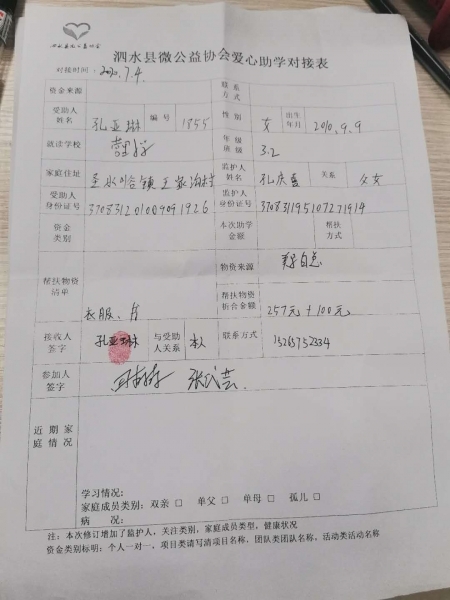 泗水县微公益协会
泗水县微公益协会爱心助学对接表
对接时间：2020.7.4.
资金来源 联系方式
受助人姓名 孔亚琳 编号 1855 性别 女 出生年月 2010.9.9
就读学校 年级班级 3.2
家庭住址 监护人姓名 孔庆 关系 父女
受助人身份证号 370831201009091926 监护人身份证号
资金类别 本次助学金额 帮扶方式
帮扶物资清单 衣服、 物资来源
帮扶物资折合金额 257元+100元
接收人签字 孔亚琳 与受助人关系 本人 联系方式 15265752334
参加人签字
近期家庭情况
学习情况：
家庭成员类别：双亲 □ 单父 □ 单母 □ 孤儿 □
病 况：
注：本次修订增加了监护人，关注类别，家庭成员类型，健康状况
资金类别标明：个人一对一，项目类请写清项目名称、团队类团队名称，活动类活动名称